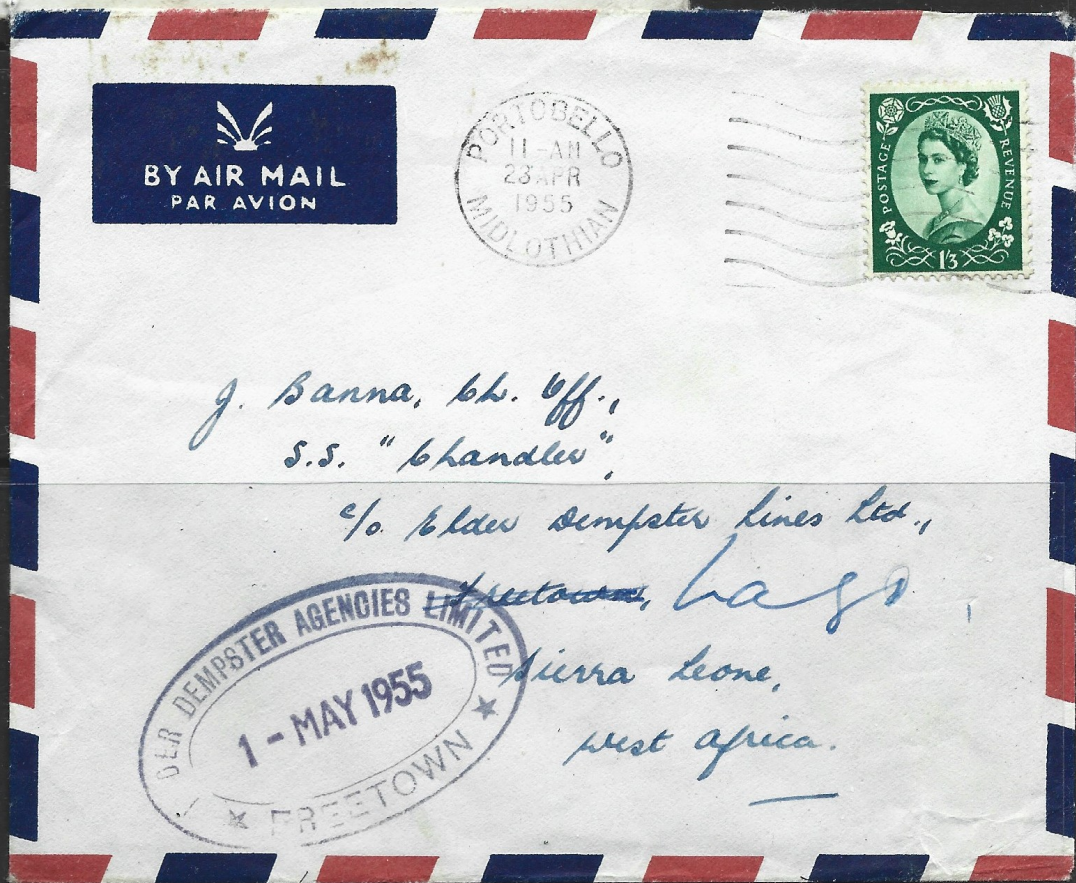 BY AIR MAIL
PAR AVION
PORTOBELLO
11-AM
23 APR
1955
MIDLOTHIAN
POSTAGE
REVENUE
1/3
J. Banna, Ch. Off.,
S.S. "Chandler",
c/o. Elder Dempster Lines Ltd.,
Freetown, Lagos
Sierra Leone,
West Africa.
DER DEMPSTER AGENCIES LIMITED
1 - MAY 1955
FREETOWN